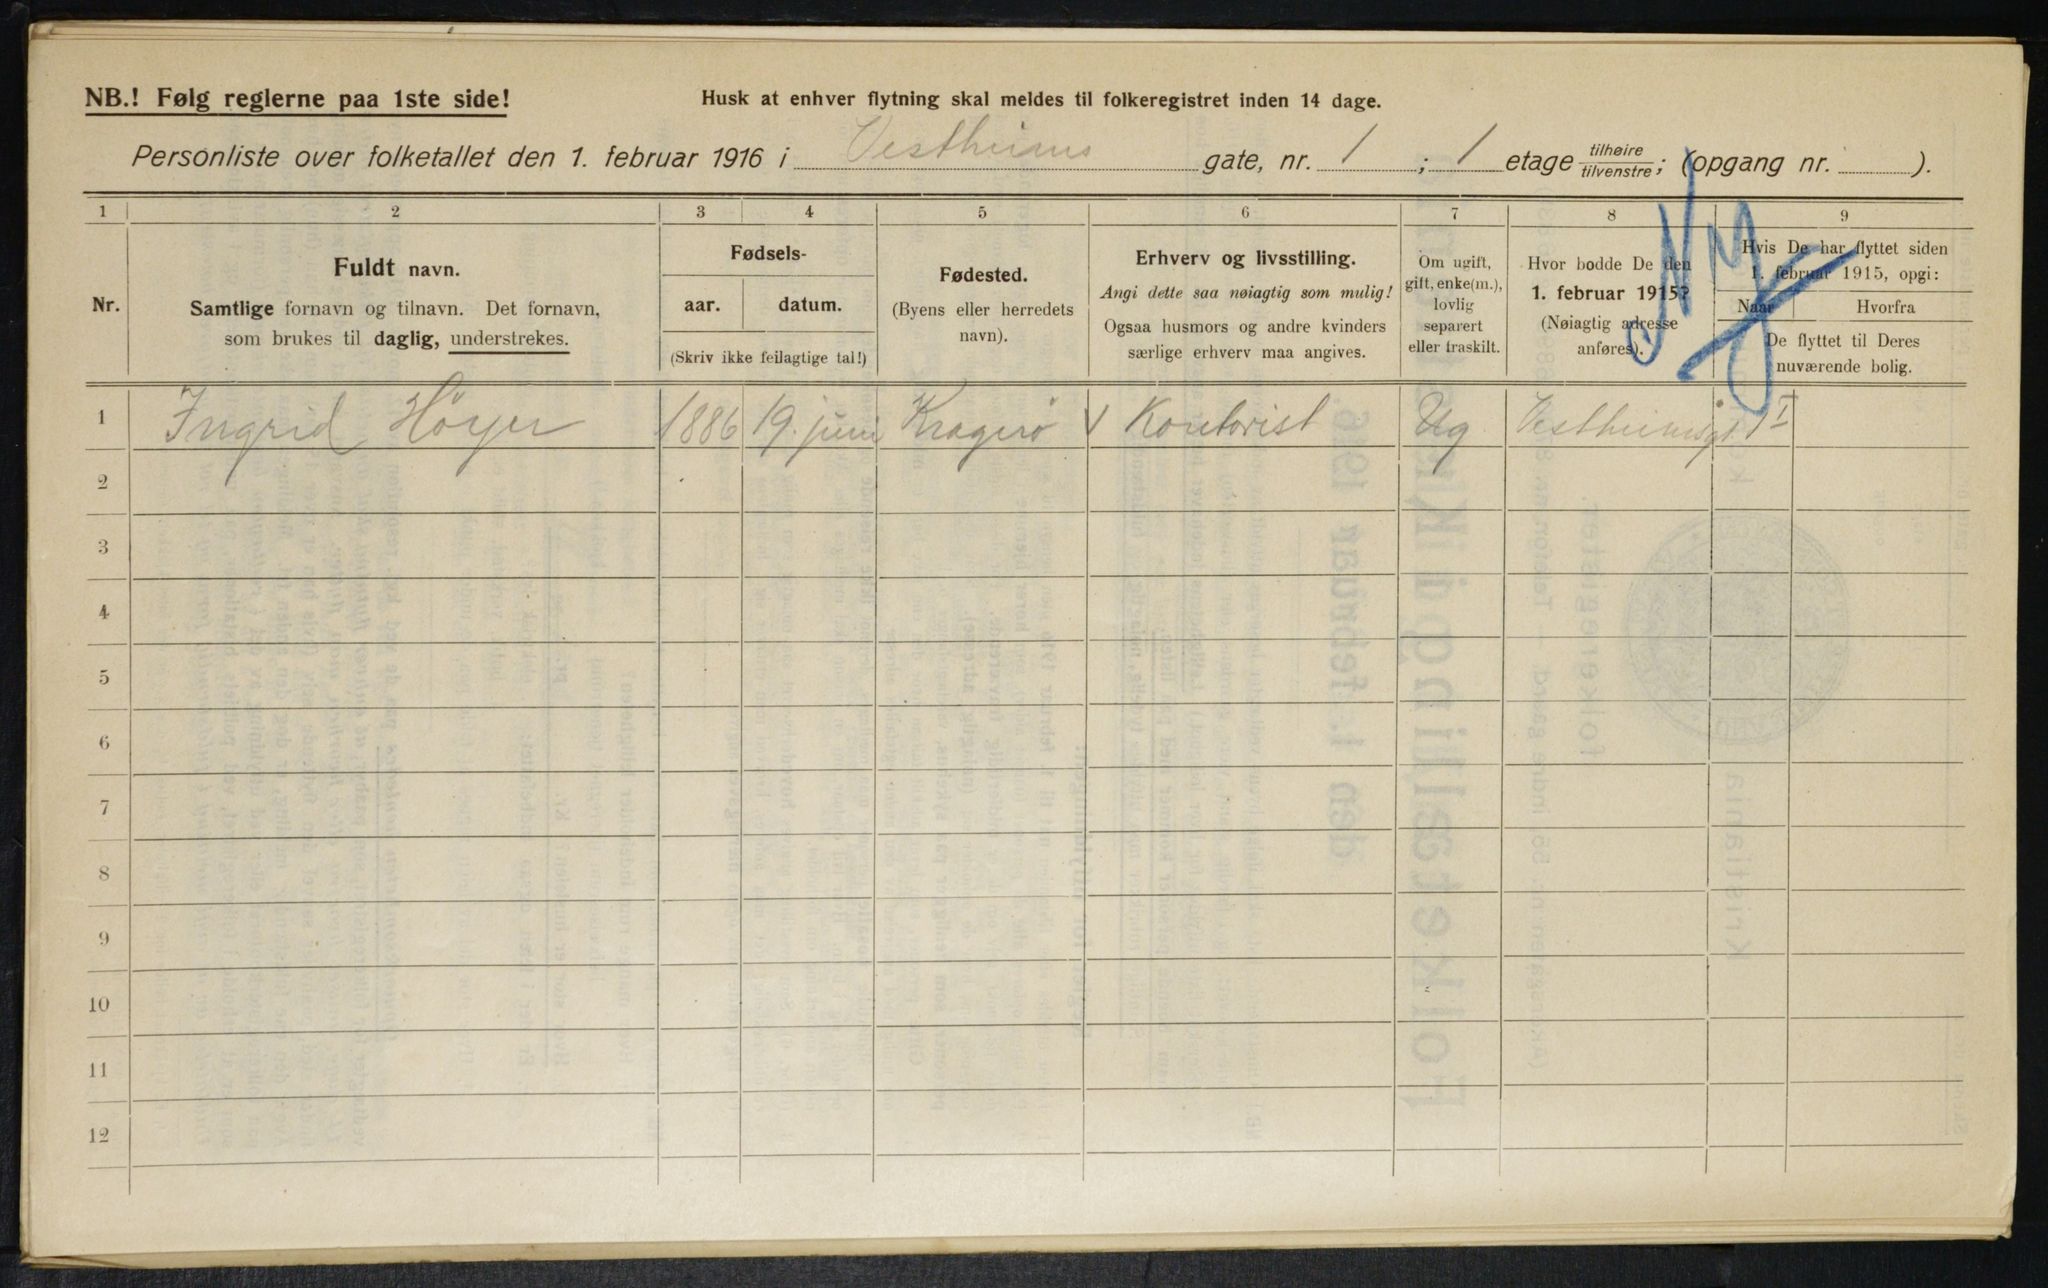 NB.! Følg reglerne paa 1ste side!
Husk at enhver flytning skal meldes til folkeregistret inden 14 dage.
Personliste over folketallet den 1. februar 1916 i Vestheims gate, nr. 1 ; 1 etage tilhøire/tilvenstre; (opgang nr. ).
1 2 3 4 5 6 7 8 9
Nr.
Fuldt navn.
Samtlige fornavn og tilnavn. Det fornavn,
som brukes til daglig, understrekes.
Fødsels-
aar. datum.
(Skriv ikke feilagtige tal!)
Fødested.
(Byens eller herredets
navn).
Erhverv og livsstilling.
Angi dette saa nøiagtig som mulig!
Ogsaa husmors og andre kvinders
særlige erhverv maa angives.
Om ugift,
gift, enke(m.),
lovlig
separert
eller fraskilt.
Hvor bodde De den
1. februar 1915?
(Nøiagtig adresse
anføres).
Hvis De har flyttet siden
1. februar 1915, opgi:
Naar Hvorfra
De flyttet til Deres
nuværende bolig.
Ny
1 Ingrid Höyer 1886 19. juni Kragerö v Kontorist Ug Vestheimsgt 1 I
2
3
4
5
6
7
8
9
10
11
12